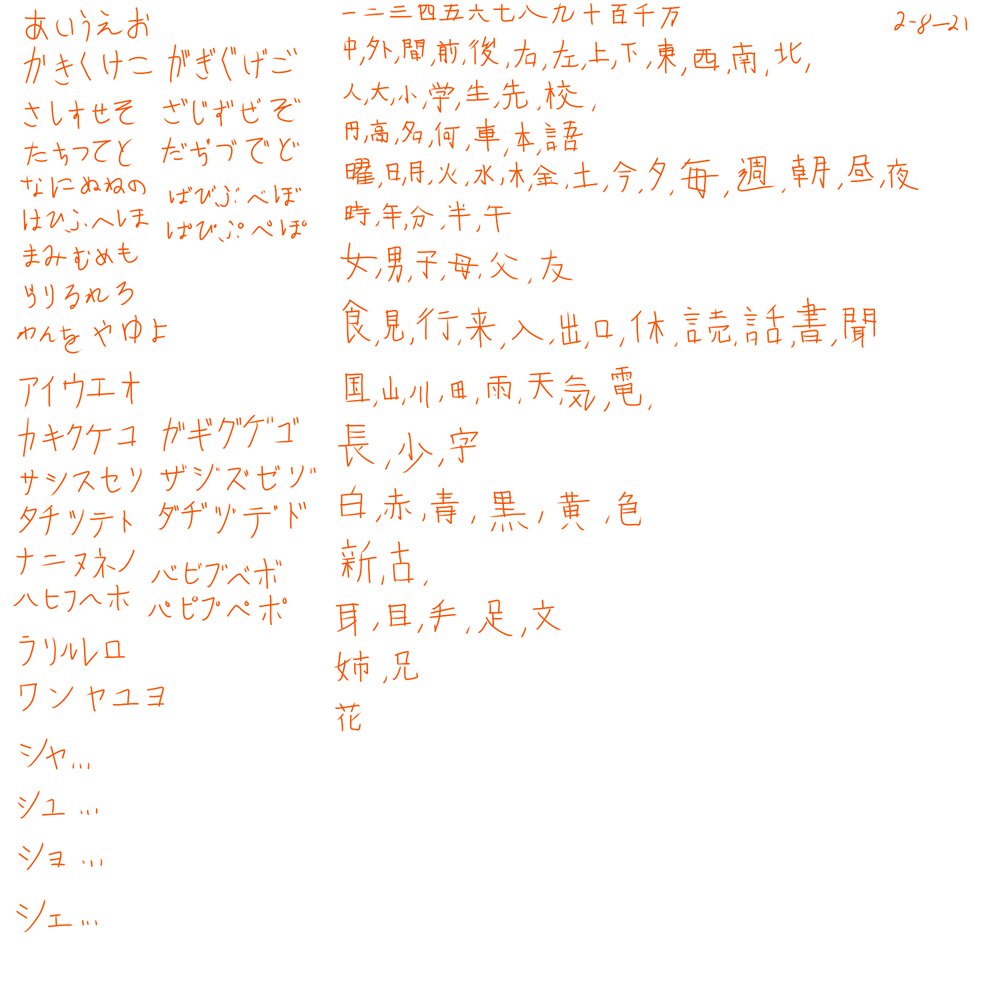 あいうえお
かきくけこ がぎぐげご
さしすせそ ざじずぜぞ
たちつてと だぢづでど
なにぬねの
ばびぶべぼ
はひふへほ
ぱぴぷぺぽ
まみむめも
らりるれろ
わんを やゆよ
アイウエオ
カキクケコ ガギグゲゴ
サシスセソ ザジズゼゾ
タチツテト ダヂヅデド
ナニヌネノ
バビブベボ
ハヒフヘホ
パピプペポ
ラリルレロ
ワン ヤユヨ
シャ...
シュ...
ショ...
シェ...
一二三四五六七八九十百千万
2-8-21
中,外,間,前,後,右,左,上,下,東,西,南,北,
人,大,小,学,生,先,校,
円,高,名,何,車,本,語
曜,日,月,火,水,木,金,土,今,夕,毎,週,朝,昼,夜
時,年,分,半,午
女,男,子,母,父,友
食,見,行,来,入,出,口,休,読,話,書,聞
国,山,川,田,雨,天,気,電,
長,少,字
白,赤,青,黒,黄,色
新,古,
耳,目,手,足,文
姉,兄
花